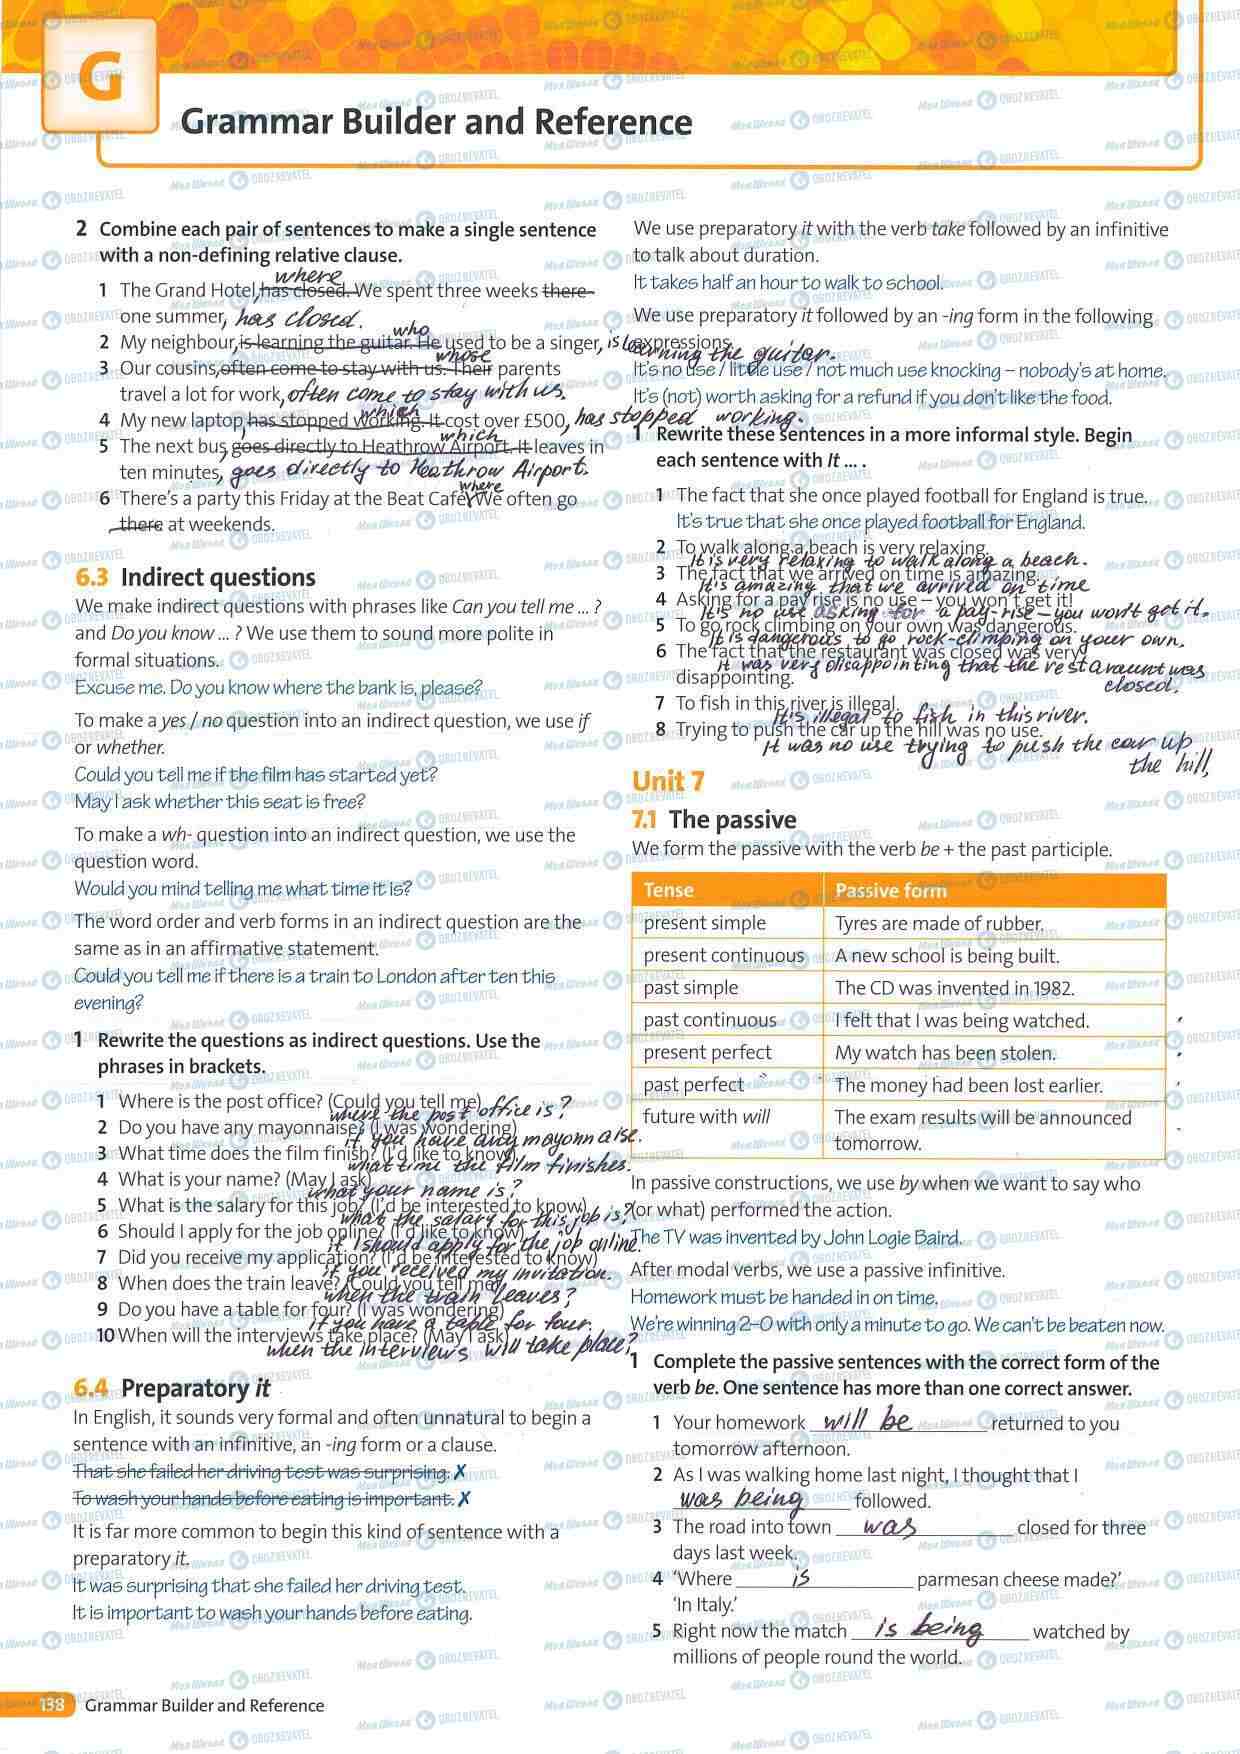 G
Grammar Builder and Reference
2 Combine each pair of sentences to make a single sentence
with a non-defining relative clause.
where
1 The Grand Hotel, has closed. We spent three weeks there
one summer, has closed.
who
2 My neighbour, is learning the guitar. He used to be a singer, is learning the guitar.
whose
3 Our cousins, often come to stay with us. Their parents
travel a lot for work, often come to stay with us.
which
4 My new laptop, has stopped working. It cost over £500, has stopped working.
which
5 The next bus, goes directly to Heathrow Airport. It leaves in
ten minutes, goes directly to Heathrow Airport.
where
6 There's a party this Friday at the Beat Café, We often go
there at weekends.
6.3 Indirect questions
We make indirect questions with phrases like Can you tell me ... ?
and Do you know ... ? We use them to sound more polite in
formal situations.
Excuse me. Do you know where the bank is, please?
To make a yes / no question into an indirect question, we use if
or whether.
Could you tell me if the film has started yet?
May I ask whether this seat is free?
To make a wh- question into an indirect question, we use the
question word.
Would you mind telling me what time it is?
The word order and verb forms in an indirect question are the
same as in an affirmative statement.
Could you tell me if there is a train to London after ten this
evening?
1 Rewrite the questions as indirect questions. Use the
phrases in brackets.
1 Where is the post office? (Could you tell me)
where the post office is?
2 Do you have any mayonnaise? (I was wondering)
if you have any mayonnaise.
3 What time does the film finish? (I'd like to know)
what time the film finishes.
4 What is your name? (May I ask)
what your name is?
5 What is the salary for this job? (I'd be interested to know)
what the salary for this job is?
6 Should I apply for the job online? (I'd like to know)
if I should apply for the job online.
7 Did you receive my application? (I'd be interested to know)
if you received my invitation.
8 When does the train leave? (Could you tell me)
when the train leaves?
9 Do you have a table for four? (I was wondering)
if you have a table for four.
10 When will the interviews take place? (May I ask)
when the interviews will take place?
6.4 Preparatory it
In English, it sounds very formal and often unnatural to begin a
sentence with an infinitive, an -ing form or a clause.
That she failed her driving test was surprising. ✗
To wash your hands before eating is important. ✗
It is far more common to begin this kind of sentence with a
preparatory it.
It was surprising that she failed her driving test.
It is important to wash your hands before eating.
138 Grammar Builder and Reference
We use preparatory it with the verb take followed by an infinitive
to talk about duration.
It takes half an hour to walk to school.
We use preparatory it followed by an -ing form in the following
expressions.
It's no use / little use / not much use knocking – nobody's at home.
It's (not) worth asking for a refund if you don't like the food.
1 Rewrite these sentences in a more informal style. Begin
each sentence with It ... .
1 The fact that she once played football for England is true.
It's true that she once played football for England.
2 To walk along a beach is very relaxing.
It is very relaxing to walk along a beach.
3 The fact that we arrived on time is amazing.
It's amazing that we arrived on time
4 Asking for a pay rise is no use – you won't get it!
It's no use asking for a pay-rise – you won't get it.
5 To go rock climbing on your own was dangerous.
It is dangerous to go rock-climbing on your own.
6 The fact that the restaurant was closed was very
disappointing.
It was very disappointing that the restaraunt was
closed.
7 To fish in this river is illegal.
It's illegal to fish in this river.
8 Trying to push the car up the hill was no use.
It was no use trying to push the car up
the hill,
Unit 7
7.1 The passive
We form the passive with the verb be + the past participle.
Tense Passive form
present simple Tyres are made of rubber.
present continuous A new school is being built.
past simple The CD was invented in 1982.
past continuous I felt that I was being watched.
present perfect My watch has been stolen.
past perfect The money had been lost earlier.
future with will The exam results will be announced
tomorrow.
In passive constructions, we use by when we want to say who
(or what) performed the action.
The TV was invented by John Logie Baird.
After modal verbs, we use a passive infinitive.
Homework must be handed in on time.
We're winning 2–0 with only a minute to go. We can't be beaten now.
1 Complete the passive sentences with the correct form of the
verb be. One sentence has more than one correct answer.
1 Your homework will be returned to you
tomorrow afternoon.
2 As I was walking home last night, I thought that I
was being followed.
3 The road into town was closed for three
days last week.
4 'Where is parmesan cheese made?'
'In Italy.'
5 Right now the match is being watched by
millions of people round the world.